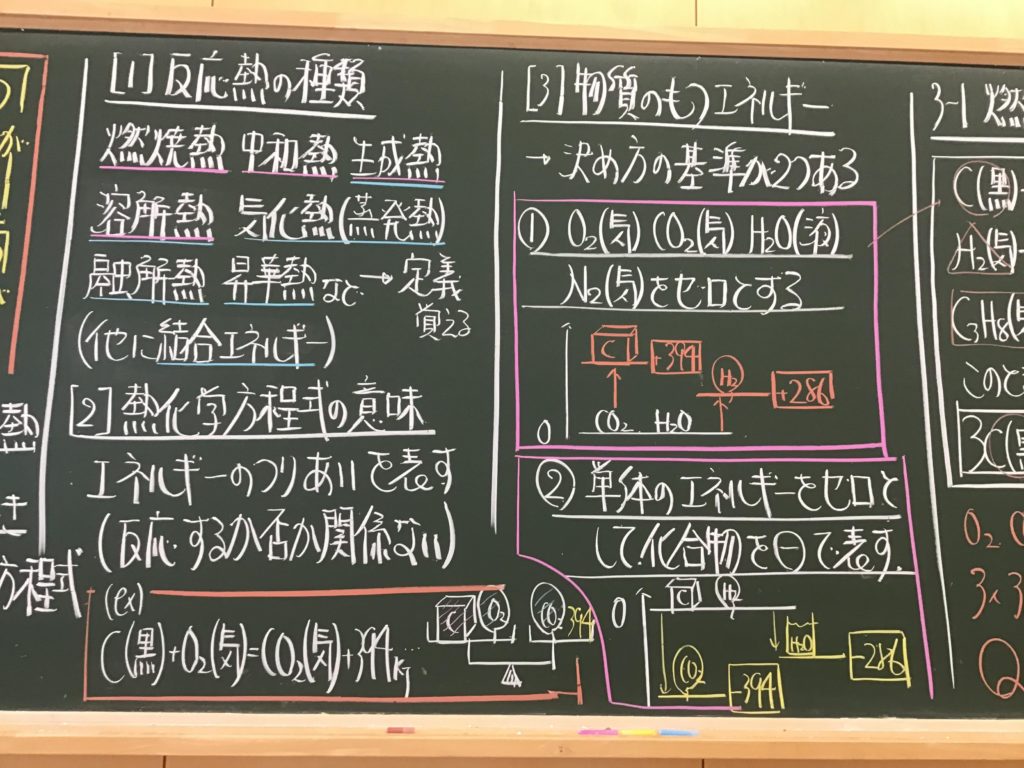 が
熱
方程式
[1] 反応熱の種類
燃焼熱 中和熱 生成熱
溶解熱 気化熱(蒸発熱)
融解熱 昇華熱 など → 定義
覚える
(他に結合エネルギー)
[2] 熱化学方程式の意味
エネルギーのつりあいを表す
(反応するか否か関係ない)
(ex)
C(黒)+O2(気)=CO2(気)+394kJ
C O2 CO2 394
[3] 物質のもつエネルギー
→ 決め方の基準が2つある
① O2(気) CO2(気) H2O(液)
N2(気)をゼロとする
C +394 H2 +286
CO2 H2O
0
② 単体のエネルギーをゼロと
して化合物を⊖で表す.
0 C H2
H2O -286
CO2 -394
3-1 燃
C(黒)
H2(気)
C3H8(気)
このと
3C(黒
O2
3×3
Q